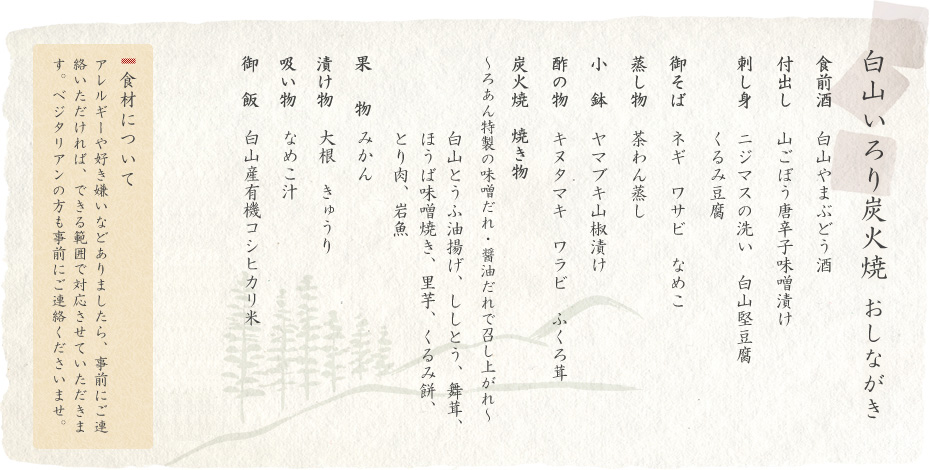 白山いろり炭火焼 おしながき
食前酒 白山やまぶどう酒
付出し 山ごぼう唐辛子味噌漬け
刺し身 ニジマスの洗い 白山堅豆腐
くるみ豆腐
御そば ネギ ワサビ なめこ
蒸し物 茶わん蒸し
小鉢 ヤマブキ山椒漬け
酢の物 キヌタマキ ワラビ ふくろ茸
炭火焼 焼き物
〜ろあん特製の味噌だれ・醤油だれで召し上がれ〜
白山とうふ油揚げ、ししとう、舞茸、
ほうば味噌焼き、里芋、くるみ餅、
とり肉、岩魚
果物 みかん
漬け物 大根 きゅうり
吸い物 なめこ汁
御飯 白山産有機コシヒカリ米
食材について
アレルギーや好き嫌いなどありましたら、事前にご連
絡いただければ、できる範囲で対応させていただきま
す。ベジタリアンの方も事前にご連絡くださいませ。